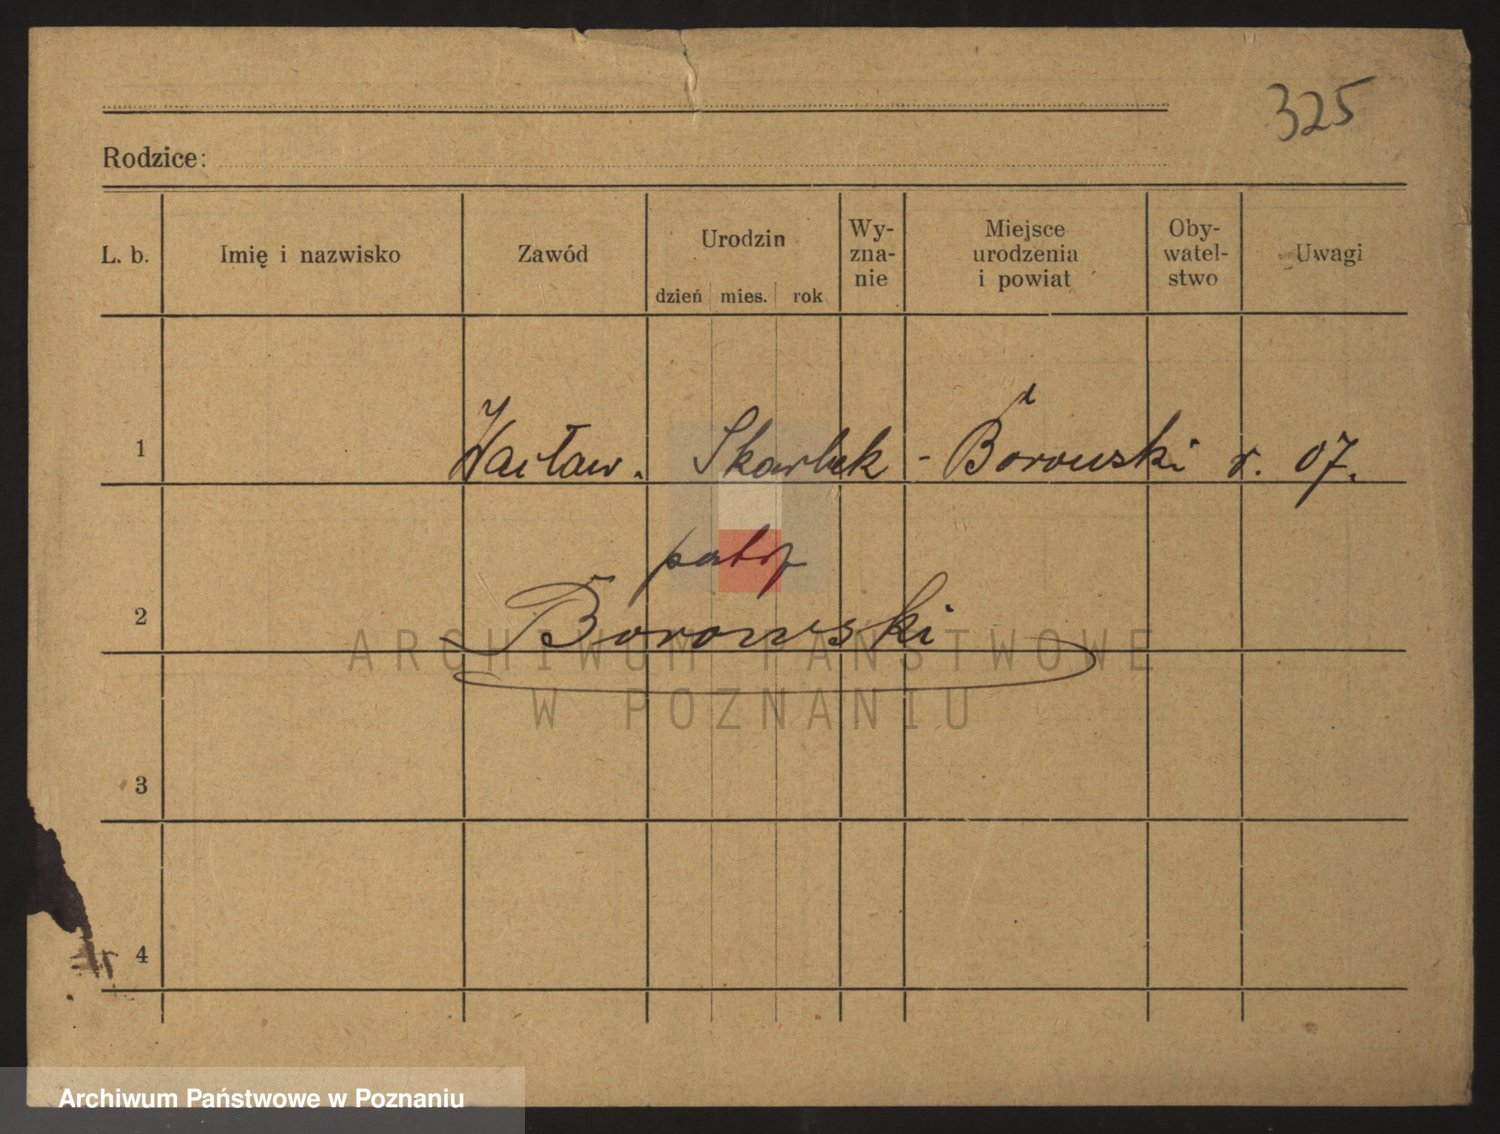 325
Rodzice:
L. b. Imię i nazwisko Zawód Urodzin dzień mies. rok Wy-zna-nie Miejsce urodzenia i powiat Oby-watel-stwo Uwagi
1 Wacław. Skarbek - Borowski r. 07.
patrz
2 Borowski
ARCHIWUM PAŃSTWOWE
W POZNANIU
3
4
Archiwum Państwowe w Poznaniu